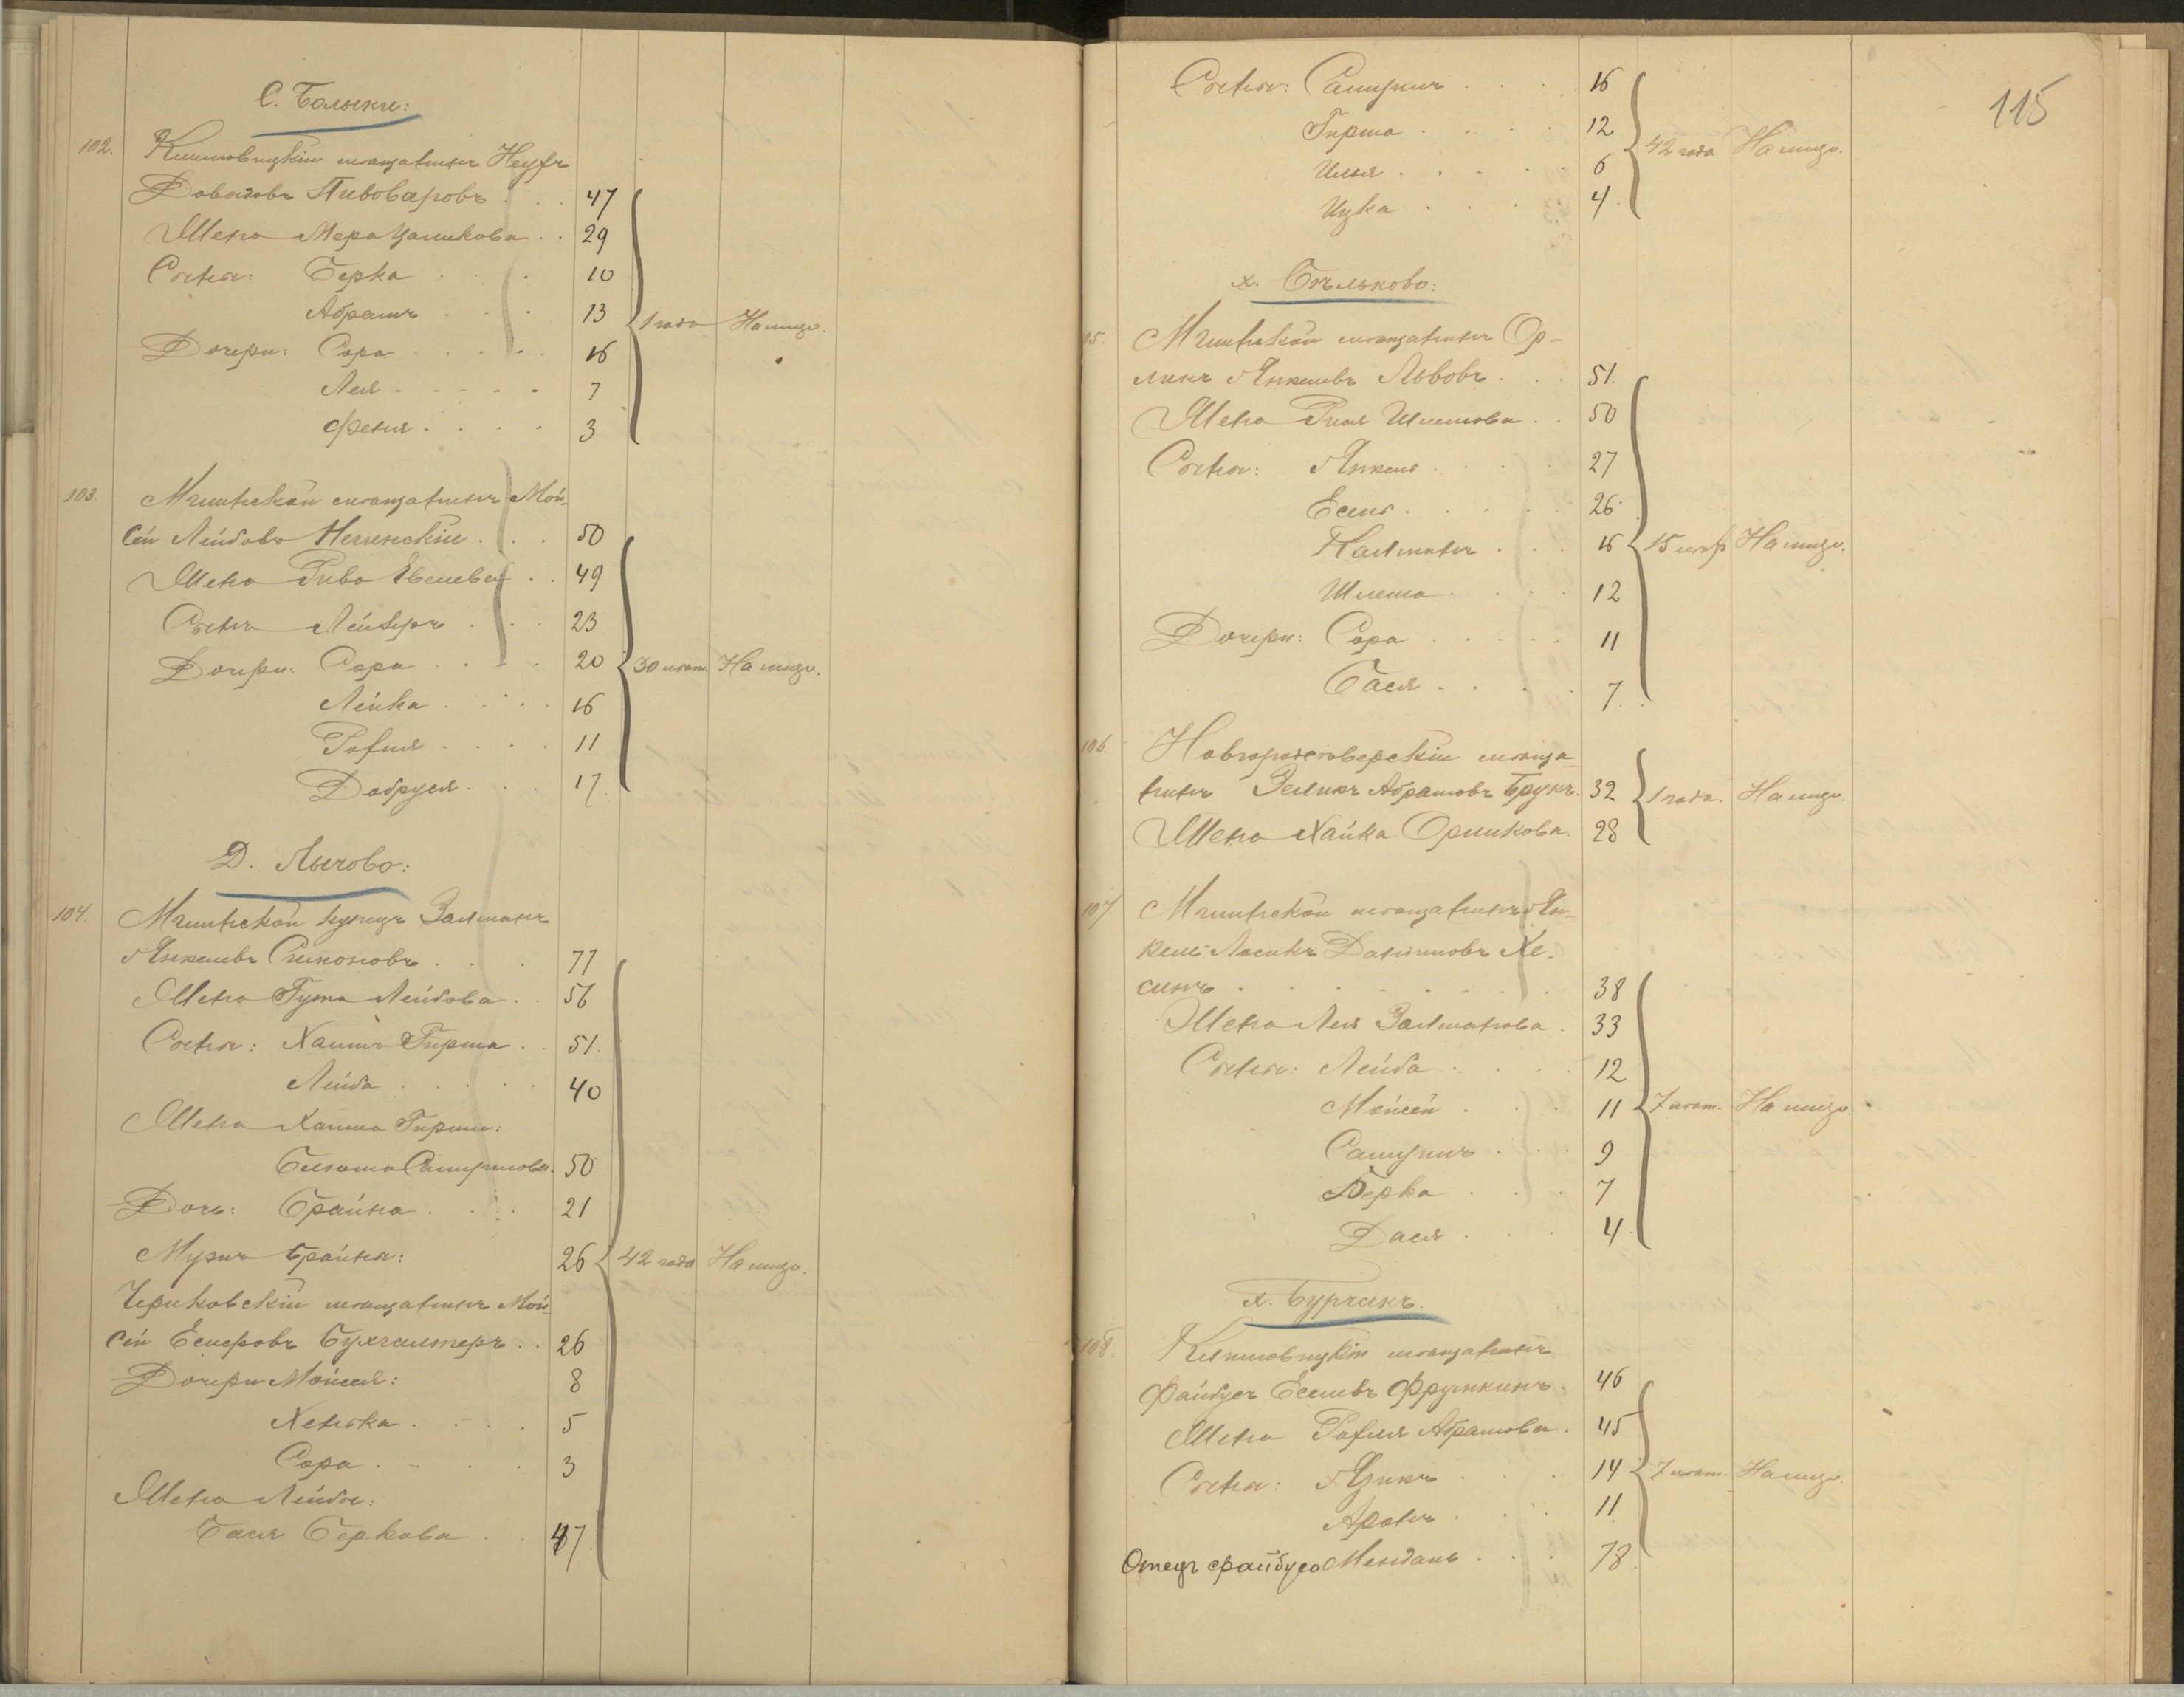 С. Балыки:
102. Климовицкій мѣщанинъ Неухъ
Давыдовъ Пивоваровъ . . . 47
Жена Мера Цаликова . . 29
Сыны: Берка . . . 10
Абрамъ . . . 13 1 года На лицо.
Дочери: Сора . . . . . 16
Лея . . . . . 7
Феня . . . . 3
103. Мглинскій мѣщанинъ Мой-
сей Лейбовъ . . . 50
Жена Рива . . 49
Сынъ Лейзеръ . . . 23
Дочери: Сора . . . . 20 30 лѣт. На лицо.
Лейка . . . . 16
Рафля . . . . 11
Добруся . . . 17.
Д. Лычово:
104. Мглинскій купецъ Залманъ
Янкелевъ Симоновъ . . . 77
Жена Гута Лейбова . . 56
Сыны: Хаимъ Гирша . . 51.
Лейба . . . . . 40
Жена Хаима Гирши:
50
Дочь: Брайна . . . . 21
Мужъ Брайны: 26 42 года На лицо.
Чериковскій мѣщанинъ Мой-
сей Есперовъ Бухгалтеръ . . 26
Дочери Мойсея: 8
Хенька . . . . 5
Сора . . . . 3
Жена Лейбы:
Бася Беркова . . 47.
115
Сыны: Самуилъ . . . . 16
Гирша . . . . 12
42 года На лицо.
Илья . . . . . 6
Ицка . . . . 4.
х. Бѣльково:
105. Мглинскій мѣщанинъ Ор-
ликъ Янкелевъ Львовъ . . . 51.
Жена Рися Шлемова . . 50
Сыны: Янкель . . . . 27
Есель . . . . . 26
Калманъ . . . 16 15 На лицо.
Шлема . . . . 12
Дочери: Сора . . . . . 11
Бася . . . . 7.
106. Новгородсѣверскій мѣща-
нинъ Зеликъ Абрамовъ Брукъ. 32 1 года. На лицо.
Жена Хайка Орликова. 28
107. Мглинскій мѣщанинъ Ян-
кель Лосикъ Хе-
синъ . . . . . . . 38
Жена Лея Залманова . 33
Сыны: Лейба . . . . 12
Мойсей . . . 11 7 лѣт. На лицо
Самуилъ . . . 9
Берка . . . 7
Дася . . . 4
х. Бурчакъ.
108. Климовицкій мѣщанинъ
Файбусъ Еселевъ Фрумкинъ. 46
Жена Рафля Абрамова. 45
Сыны: Ицикъ . . . 14 7 лѣт. На лицо.
Аронъ . . . 11
Отецъ Файбуса Мендель . . . 78.